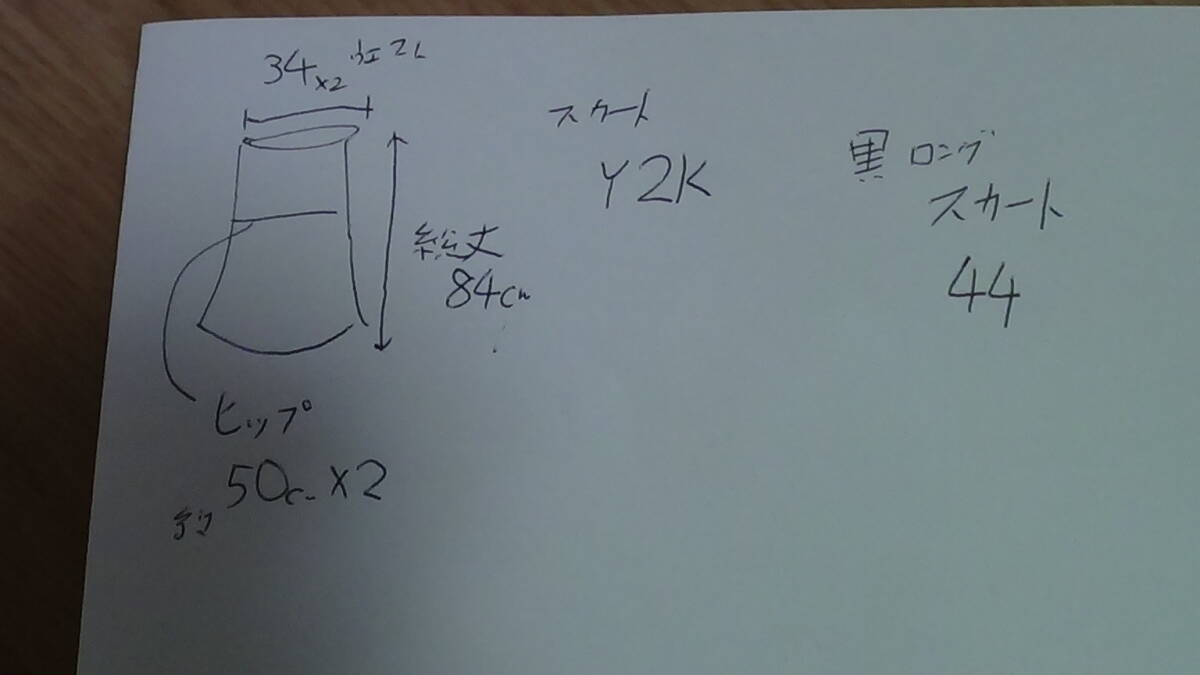 34×2 ウエスト
総丈
84cm
ヒップ
約 50cm×2
スカート
Y2K
黒 ロング
スカート
44